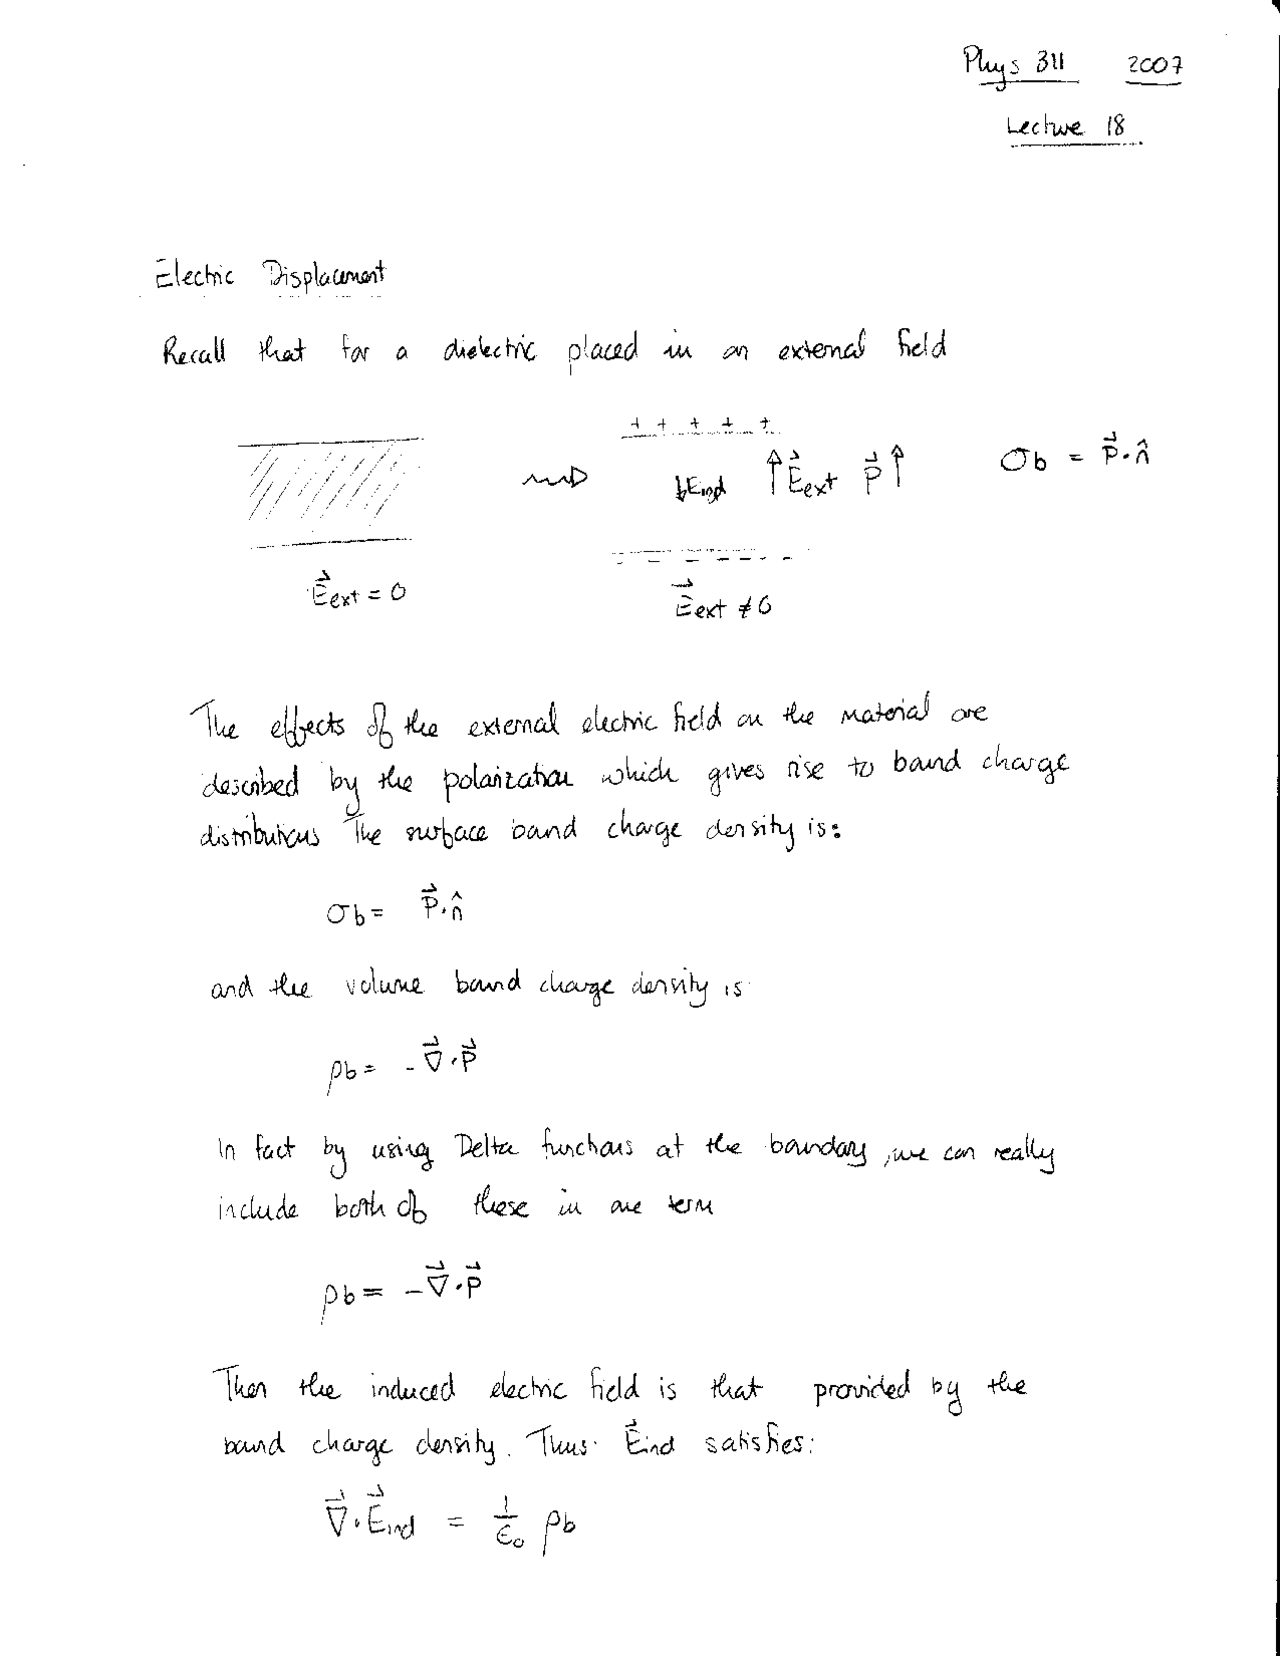 Phys 311 2007
Lecture 18
Electric Displacement
Recall that for a dielectric placed in an external field
+ + + + +
↓Eind ↑E⃗ext P⃗↑ σb = P⃗·n̂
- - - - - -
E⃗ext = 0
E⃗ext ≠ 0
The effects of the external electric field on the material are
described by the polarization which gives rise to bound charge
distributions The surface bound charge density is:
σb = P⃗·n̂
and the volume bound charge density is
ρb = -∇⃗·P⃗
In fact by using Delta functions at the boundary, we can really
include both of these in one term
ρb = -∇⃗·P⃗
Then the induced electric field is that provided by the
bound charge density. Thus E⃗ind satisfies:
∇⃗·E⃗ind = 1/ϵ₀ ρb